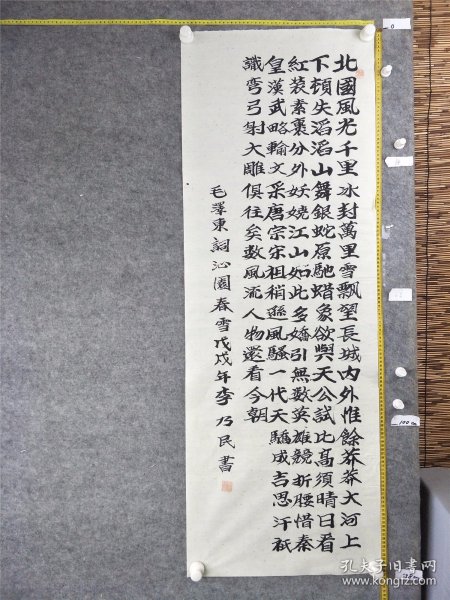 北國風光千里冰封萬里雪飄望長城内外惟餘莽莽大河上
下頓失滔滔山舞銀蛇原馳蜡象欲與天公試比高須晴日看
紅装素裹分外妖嬈江山如此多嬌引無數英雄競折腰惜秦
皇漢武略輸文采唐宗宋祖稍遜風騷一代天驕成吉思汗祇
識弯弓射大雕俱往矣數風流人物還看今朝
毛澤東詞沁園春雪戊戌年李乃民書
0
100 cm
孔夫子旧书网
www.kongfz.com